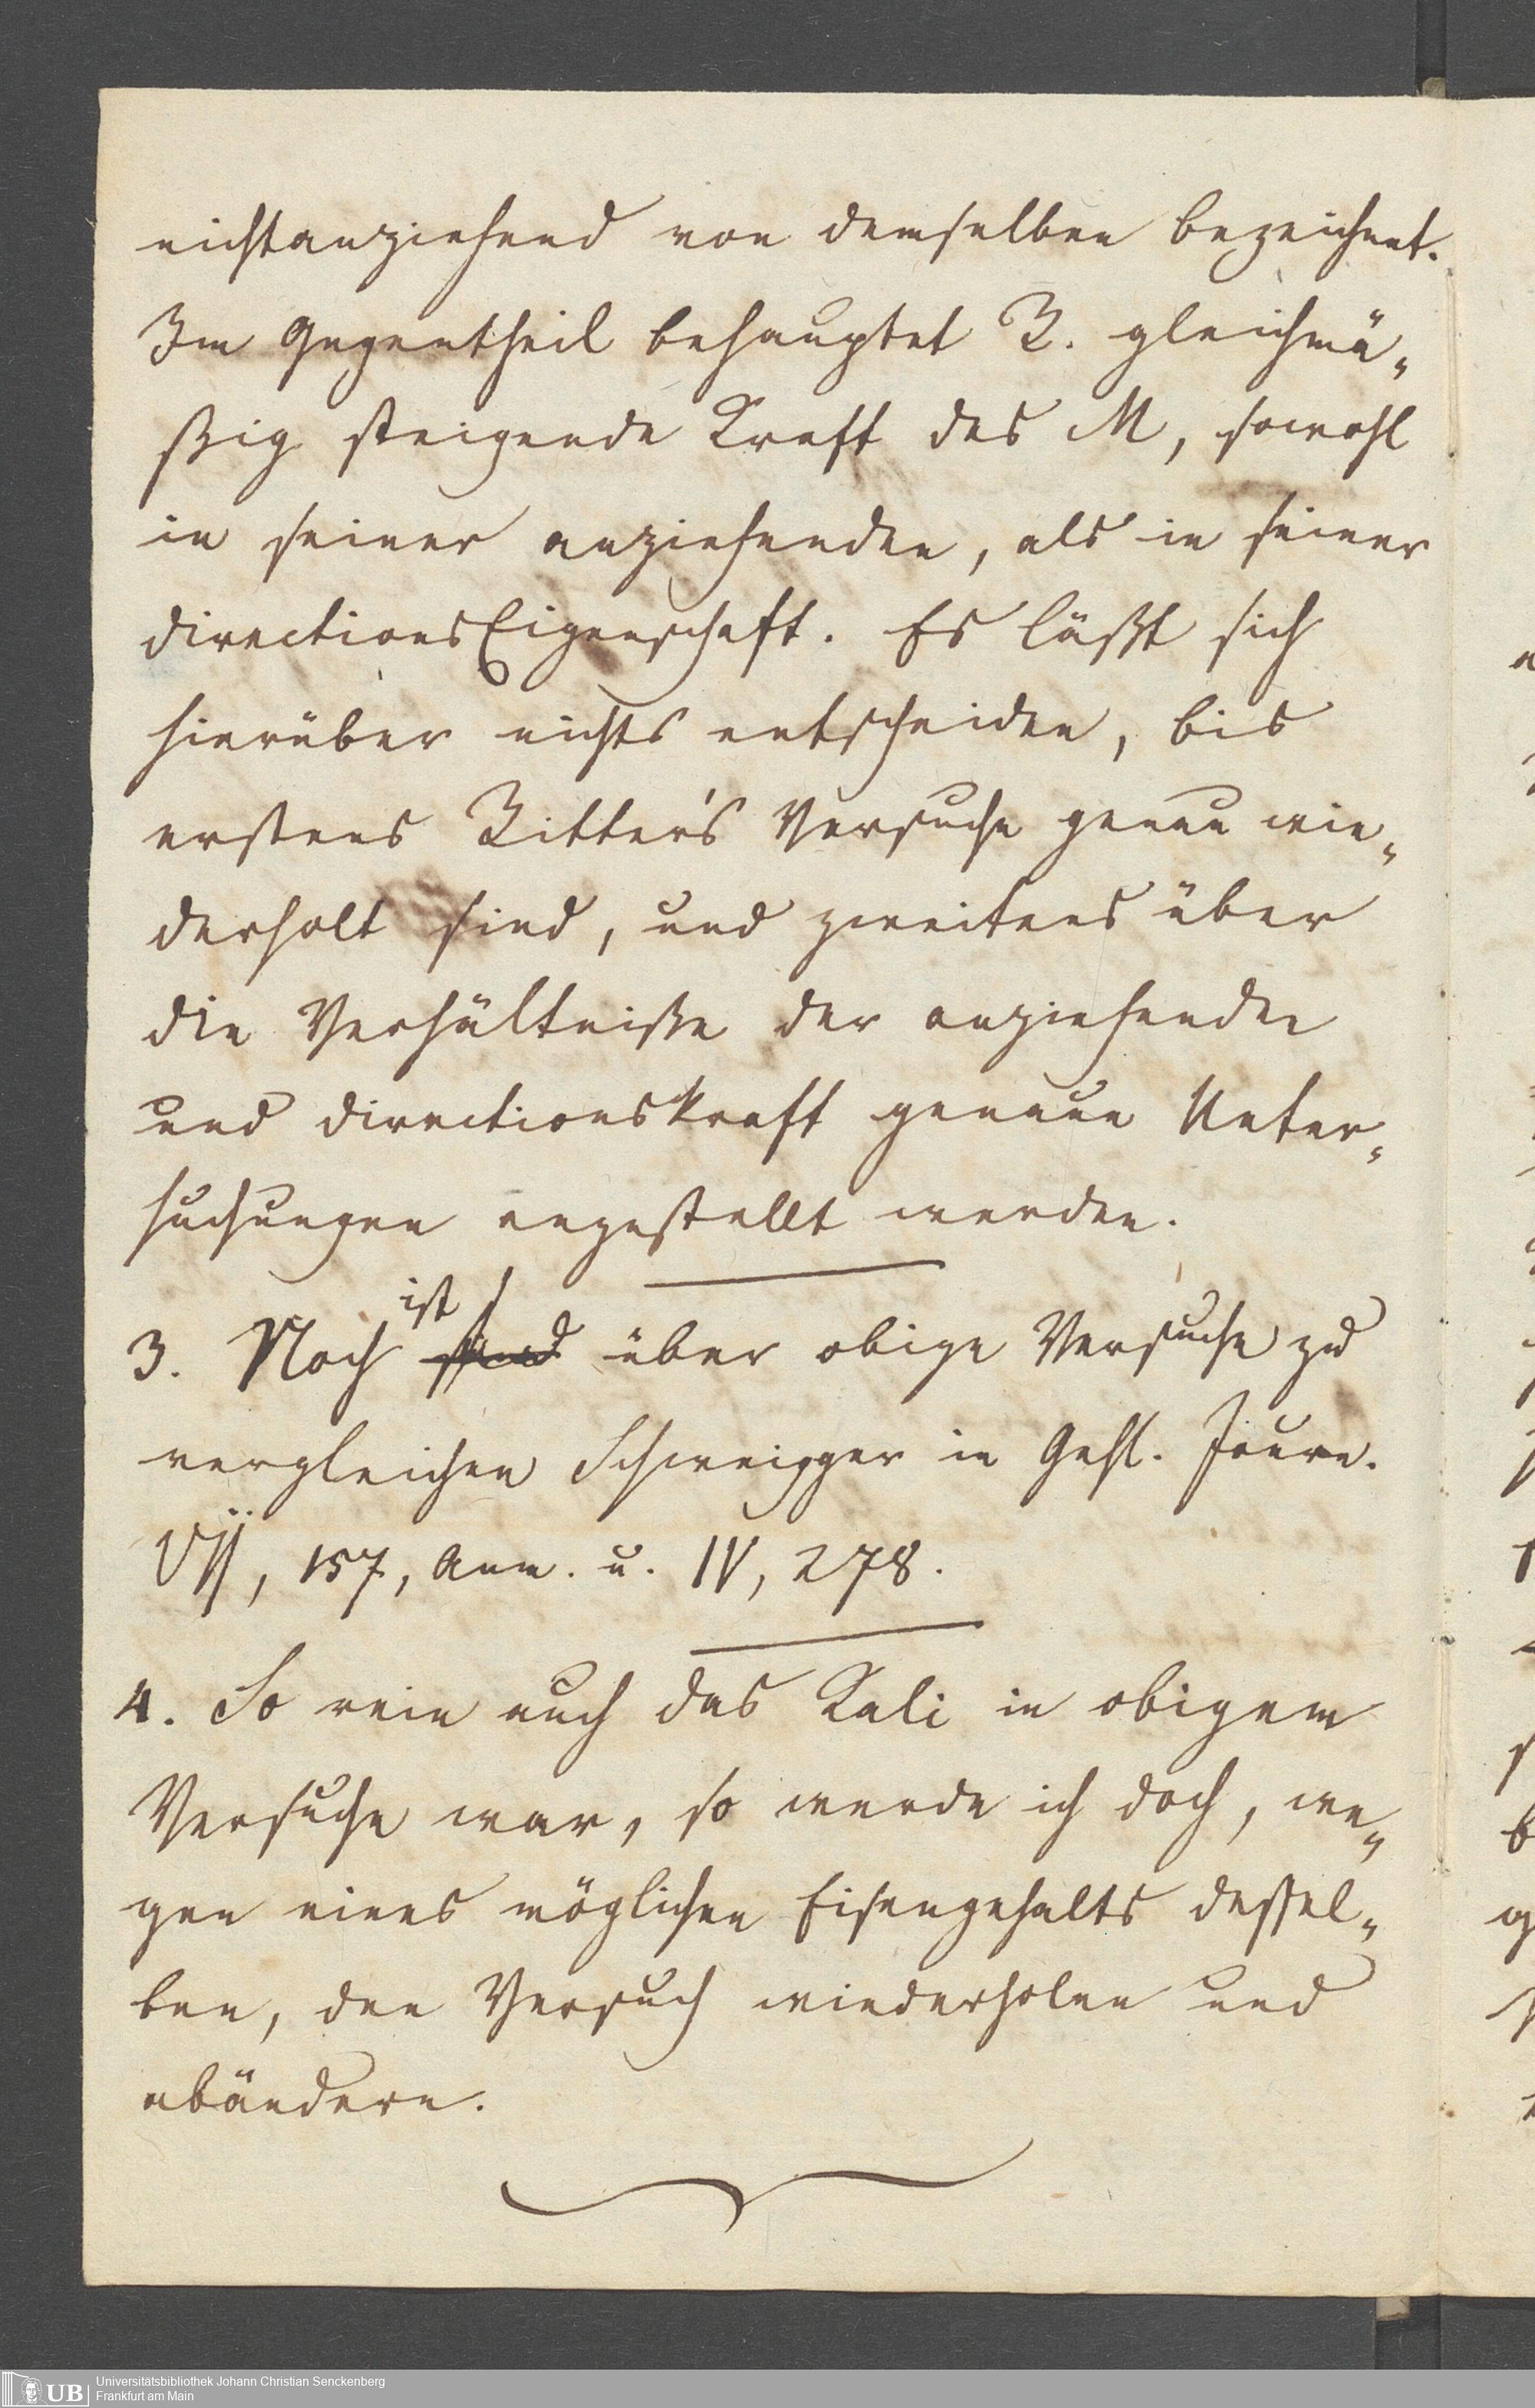 nichtanziehend von demselben bezeichnet.
Im Gegentheil behauptet R. gleichmä-
ßig steigende Kraft des M, sowohl
in seiner anziehenden, als in seiner
directionsEigenschaft. Es läßt sich
hierüber nichts entscheiden, bis
erstens Ritter's Versuche genau wie-
derholt sind, und zweitens über
die Verhältniße der anziehenden
und directionskraft genaue Unter-
suchungen angestellt werden.
ist
3. Noch sind über obige Versuche zu
vergleichen Schweigger in Gehl. Journ.
VII, 157, Anm. u. IV, 278.
4. So rein auch das Kali in obigem
Versuche war, so werde ich doch, we-
gen eines möglichen Eisengehalts dessel-
ben, den Versuch wiederholen und
abändern.
UB
Universitätsbibliothek Johann Christian Senckenberg
Frankfurt am Main